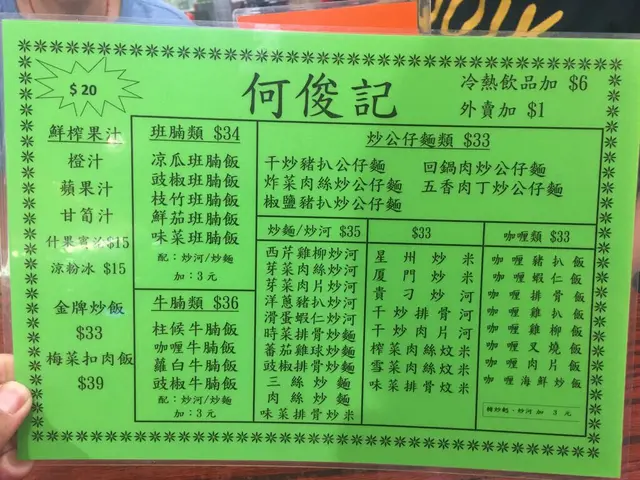 $20
何俊記
冷熱飲品加 $6
外賣加 $1
鮮榨果汁
橙汁
蘋果汁
甘筍汁
什果賓治$15
涼粉冰 $15
金牌炒飯
$33
梅菜扣肉飯
$39
班腩類 $34
凉瓜班腩飯
豉椒班腩飯
枝竹班腩飯
鮮茄班腩飯
味菜班腩飯
配：炒河/炒麵
加：3元
牛腩類 $36
柱候牛腩飯
咖喱牛腩飯
蘿白牛腩飯
豉椒牛腩飯
配：炒河/炒麵
加：3元
炒公仔麵類 $33
干炒豬扒公仔麵
炸菜肉絲炒公仔麵
椒鹽豬扒炒公仔麵
回鍋肉炒公仔麵
五香肉丁炒公仔麵
炒麵/炒河 $35
西芹雞柳炒河
芽菜肉絲炒河
芽菜肉片炒河
洋蔥豬扒炒河
滑蛋蝦仁炒河
時菜排骨炒麵
蕃茄雞球炒麵
豉椒排骨炒麵
三絲炒麵
肉絲炒麵
味菜排骨炒米
$33
星州炒米
厦門炒米
貴刁炒河
干炒排骨河
干炒肉片河
榨菜肉絲炆米
雪菜肉絲炆米
味菜排骨炆米
咖喱類 $33
咖喱豬扒飯
咖喱蝦仁飯
咖喱排骨飯
咖喱雞扒飯
咖喱雞柳飯
咖喱叉燒飯
咖喱肉片飯
咖喱海鮮炒飯
轉炒麵、炒河加 3 元